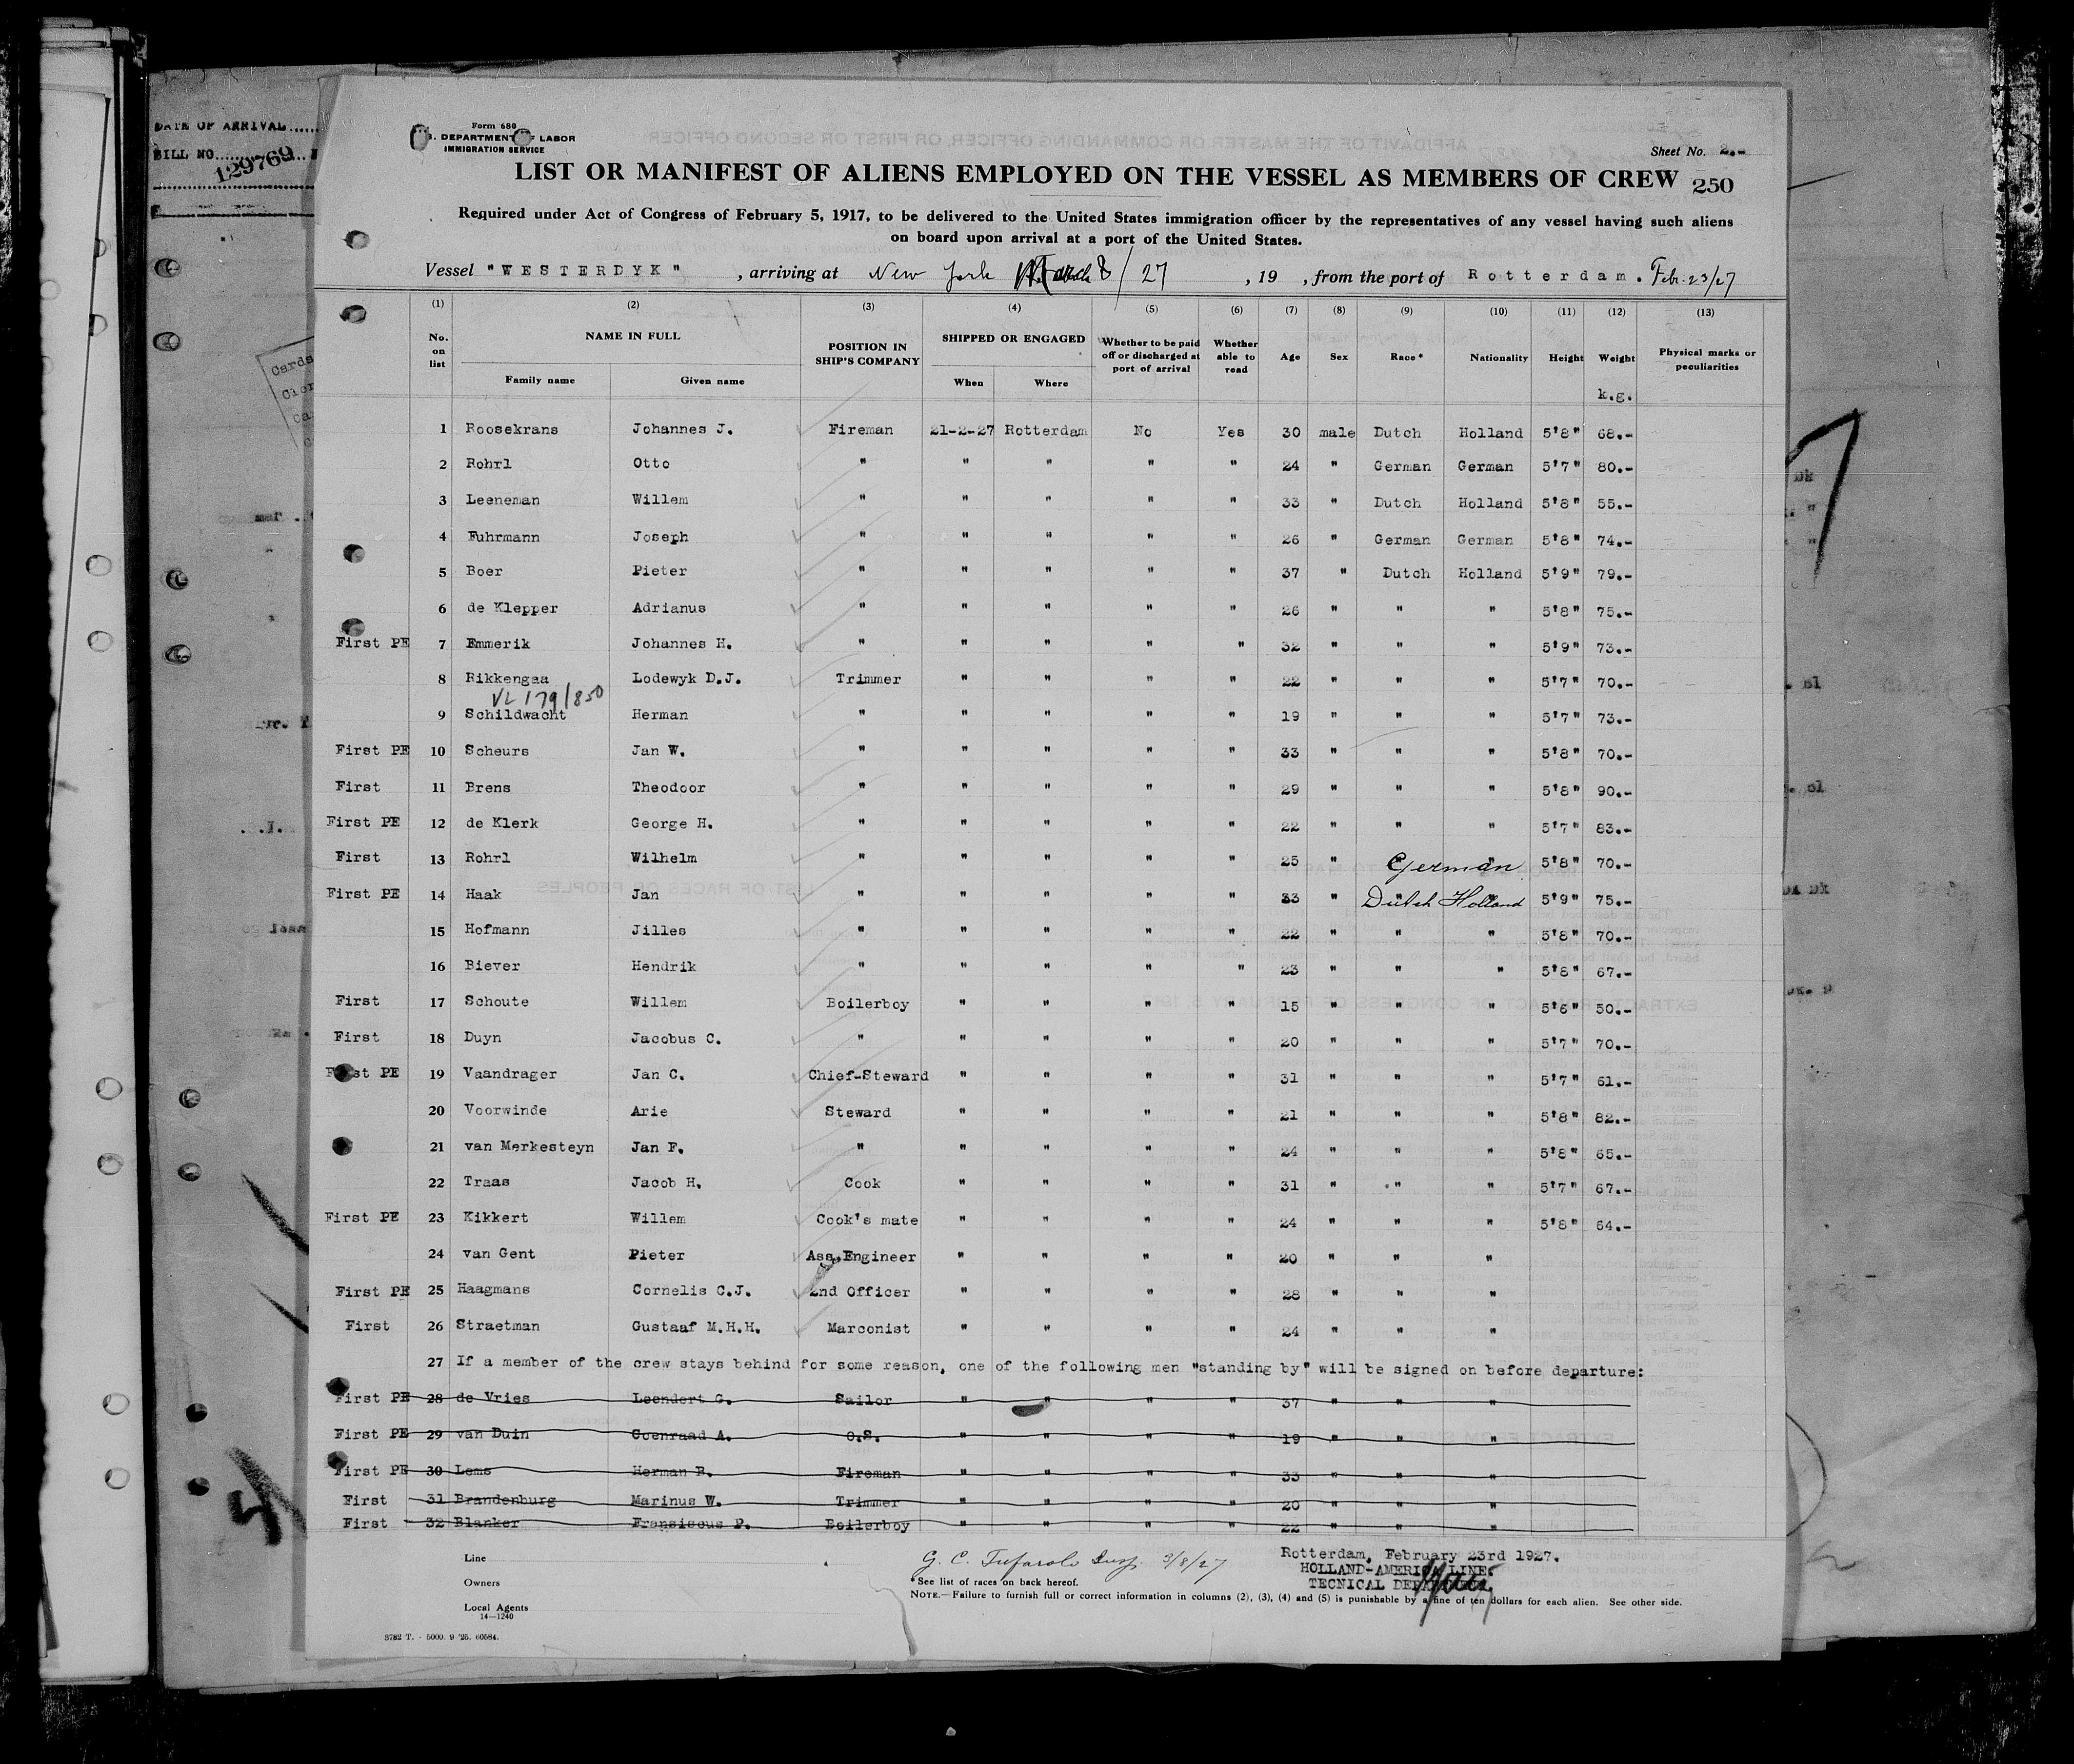 DATE OF ARRIVAL
BILL NO.
129769
Form 680
DEPARTMENT OF LABOR
IMMIGRATION SERVICE
Sheet No. 2.-
LIST OR MANIFEST OF ALIENS EMPLOYED ON THE VESSEL AS MEMBERS OF CREW 250
Required under Act of Congress of February 5, 1917, to be delivered to the United States immigration officer by the representatives of any vessel having such aliens
on board upon arrival at a port of the United States.
Vessel "WESTERDYK", arriving at New York March 8/27, 19 , from the port of Rotterdam. Feb. 23/27
(1) (2) (3) (4) (5) (6) (7) (8) (9) (10) (11) (12) (13)
No. on list NAME IN FULL Family name Given name POSITION IN SHIP'S COMPANY SHIPPED OR ENGAGED When Where Whether to be paid off or discharged at port of arrival Whether able to read Age Sex Race* Nationality Height Weight Physical marks or peculiarities
k.g.
1 Roosekrans Johannes J. Fireman 21-2-27 Rotterdam No Yes 30 male Dutch Holland 5'8" 68.-
2 Rohrl Otto " " " " " 24 " German German 5'7" 80.-
3 Leeneman Willem " " " " " 33 " Dutch Holland 5'8" 55.-
4 Fuhrmann Joseph " " " " " 26 " German German 5'8" 74.-
5 Boer Pieter " " " " " 37 " Dutch Holland 5'9" 79.-
6 de Klepper Adrianus " " " " " 26 " " " 5'8" 75.-
First PE 7 Emmerik Johannes H. " " " " " 32 " " " 5'9" 73.-
8 Rikkengaa Lodewyk D.J. Trimmer " " " " 22 " " " 5'7" 70.-
VL 179/850
9 Schildwacht Herman " " " " " 19 " " " 5'7" 73.-
First PE 10 Scheurs Jan W. " " " " " 33 " " " 5'8" 70.-
First 11 Brens Theodoor " " " " " 29 " " " 5'8" 90.-
First PE 12 de Klerk George H. " " " " " 22 " " " 5'7" 83.-
First 13 Rohrl Wilhelm " " " " " 25 " German 5'8" 70.-
First PE 14 Haak Jan " " " " " 33 " Dutch Holland 5'9" 75.-
15 Hofmann Jilles " " " " " 22 " " " 5'8" 70.-
16 Biever Hendrik " " " " " 23 " " " 5'8" 67.-
First 17 Schoute Willem Boilerboy " " " " 15 " " " 5'6" 50.-
First 18 Duyn Jacobus C. " " " " " 20 " " " 5'7" 70.-
First PE 19 Vaandrager Jan C. Chief-Steward " " " " 31 " " " 5'7" 61.-
20 Voorwinde Arie Steward " " " " 21 " " " 5'8" 82.-
21 van Merkesteyn Jan F. " " " " " 24 " " " 5'8" 65.-
22 Traas Jacob H. Cook " " " " 31 " " " 5'7" 67.-
First PE 23 Kikkert Willem Cook's mate " " " " 24 " " " 5'8" 64.-
24 van Gent Pieter Ass.Engineer " " " " 20 " " "
First PE 25 Haagmans Cornelis C.J. 2nd Officer " " " " 28 " " "
First 26 Straetman Gustaaf M.H.H. Marconist " " " " 24 " " "
27 If a member of the crew stays behind for some reason, one of the following men "standing by" will be signed on before departure:
First PE 28 de Vries Leendert G. Sailor " " " " 37 " " "
First PE 29 van Duin Coenraad A. O.S. " " " " 19 " " "
First PE 30 Lems Herman B. Fireman " " " " 33 " " "
First 31 Brandenburg Marinus W. Trimmer " " " " 20 " " "
First 32 Blanker Fransiscus P. Boilerboy " " " " 22 " " "
Line
Owners
Local Agents
14—1240
G. C. Tufarolo Insp. 3/8/27
Rotterdam, February 23rd 1927.
HOLLAND-AMERICA LINE.
TECNICAL DEPARTMENT.
*See list of races on back hereof.
NOTE.—Failure to furnish full or correct information in columns (2), (3), (4) and (5) is punishable by a fine of ten dollars for each alien. See other side.
3782 T. - 5000. 9 '25. 60584.